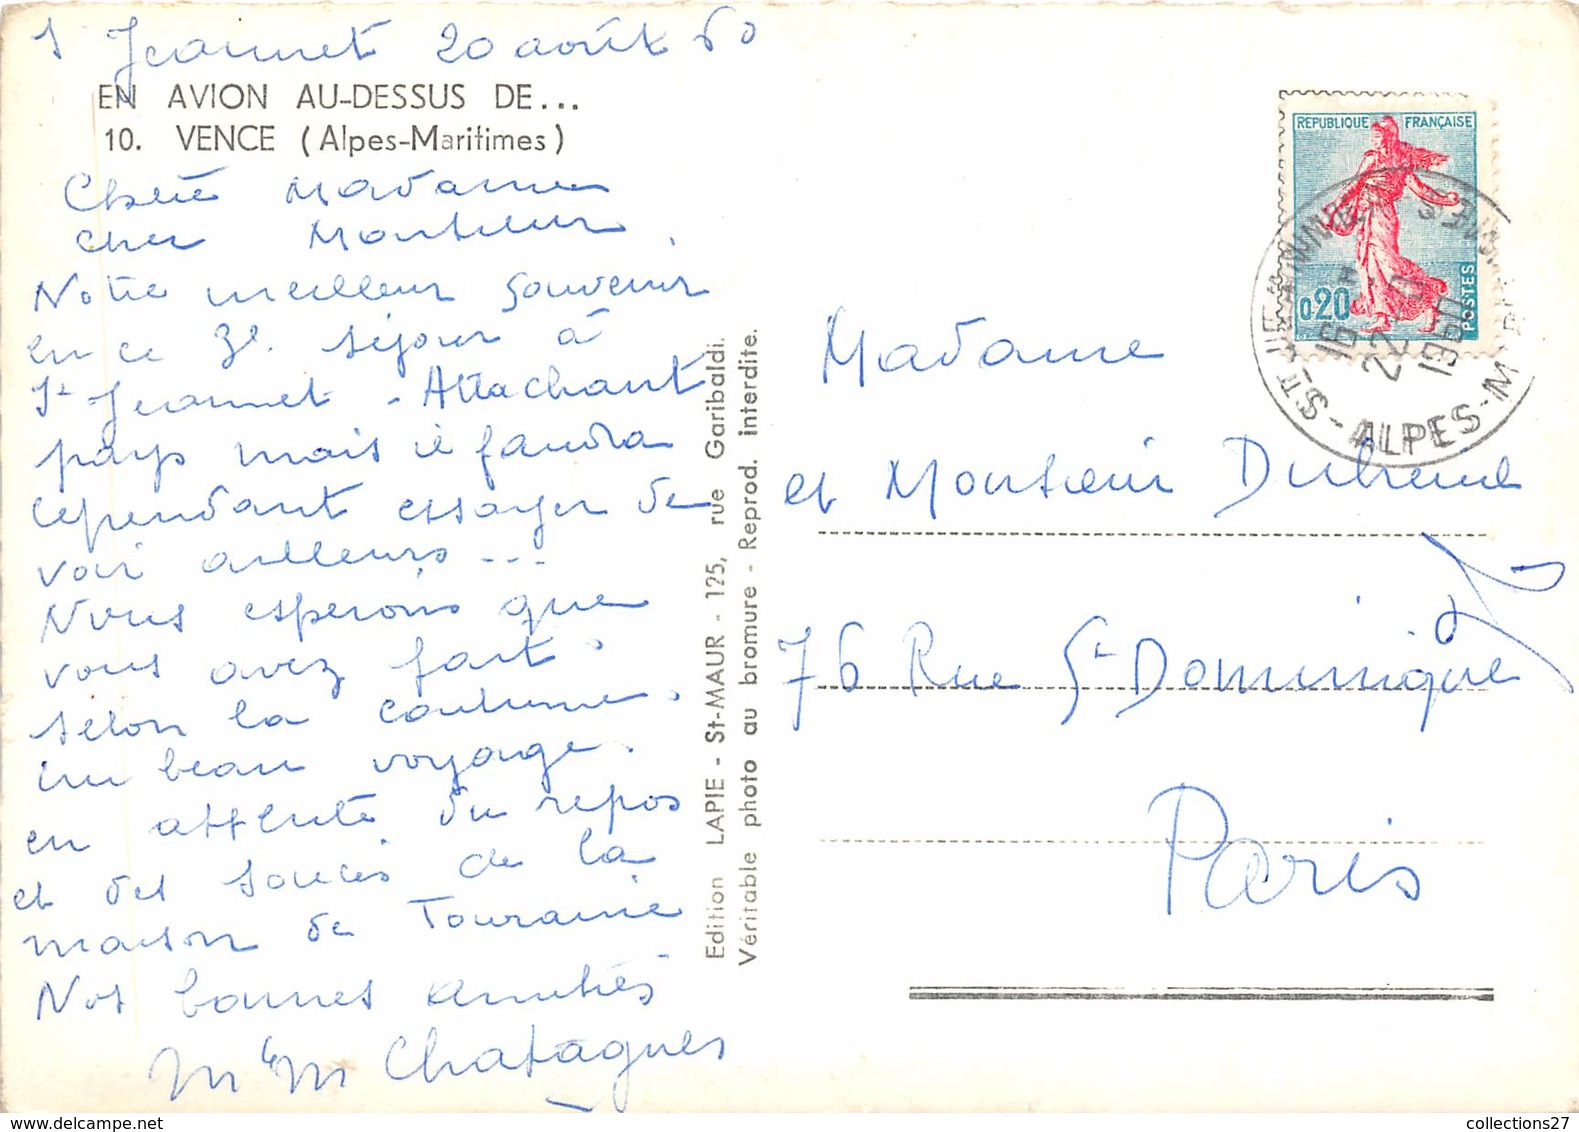 St Jeannet 20 août 60
EN AVION AU-DESSUS DE...
10. VENCE (Alpes-Maritimes)
Chère Madame
Cher Monsieur,
Notre meilleur souvenir
en ce 3e. séjour à
St Jeannet - Attachant
pays mais il faudra
cependant essayer de
voir ailleurs ---
Nous esperons que
vous avez fait,
selon la coutume,
un beau voyage,
en attente du repos
et des soucis de la
maison de Touraine
Nos bonnes amitiés
M et M Chatagner
Edition LAPIE - St-MAUR - 125, rue Garibaldi.
Véritable photo au bromure - Reprod. interdite.
REPUBLIQUE FRANÇAISE
0,20
POSTES
ALPES-M
Madame
et Monsieur Dubreuil
76 Rue St Dominique
Paris
collections27